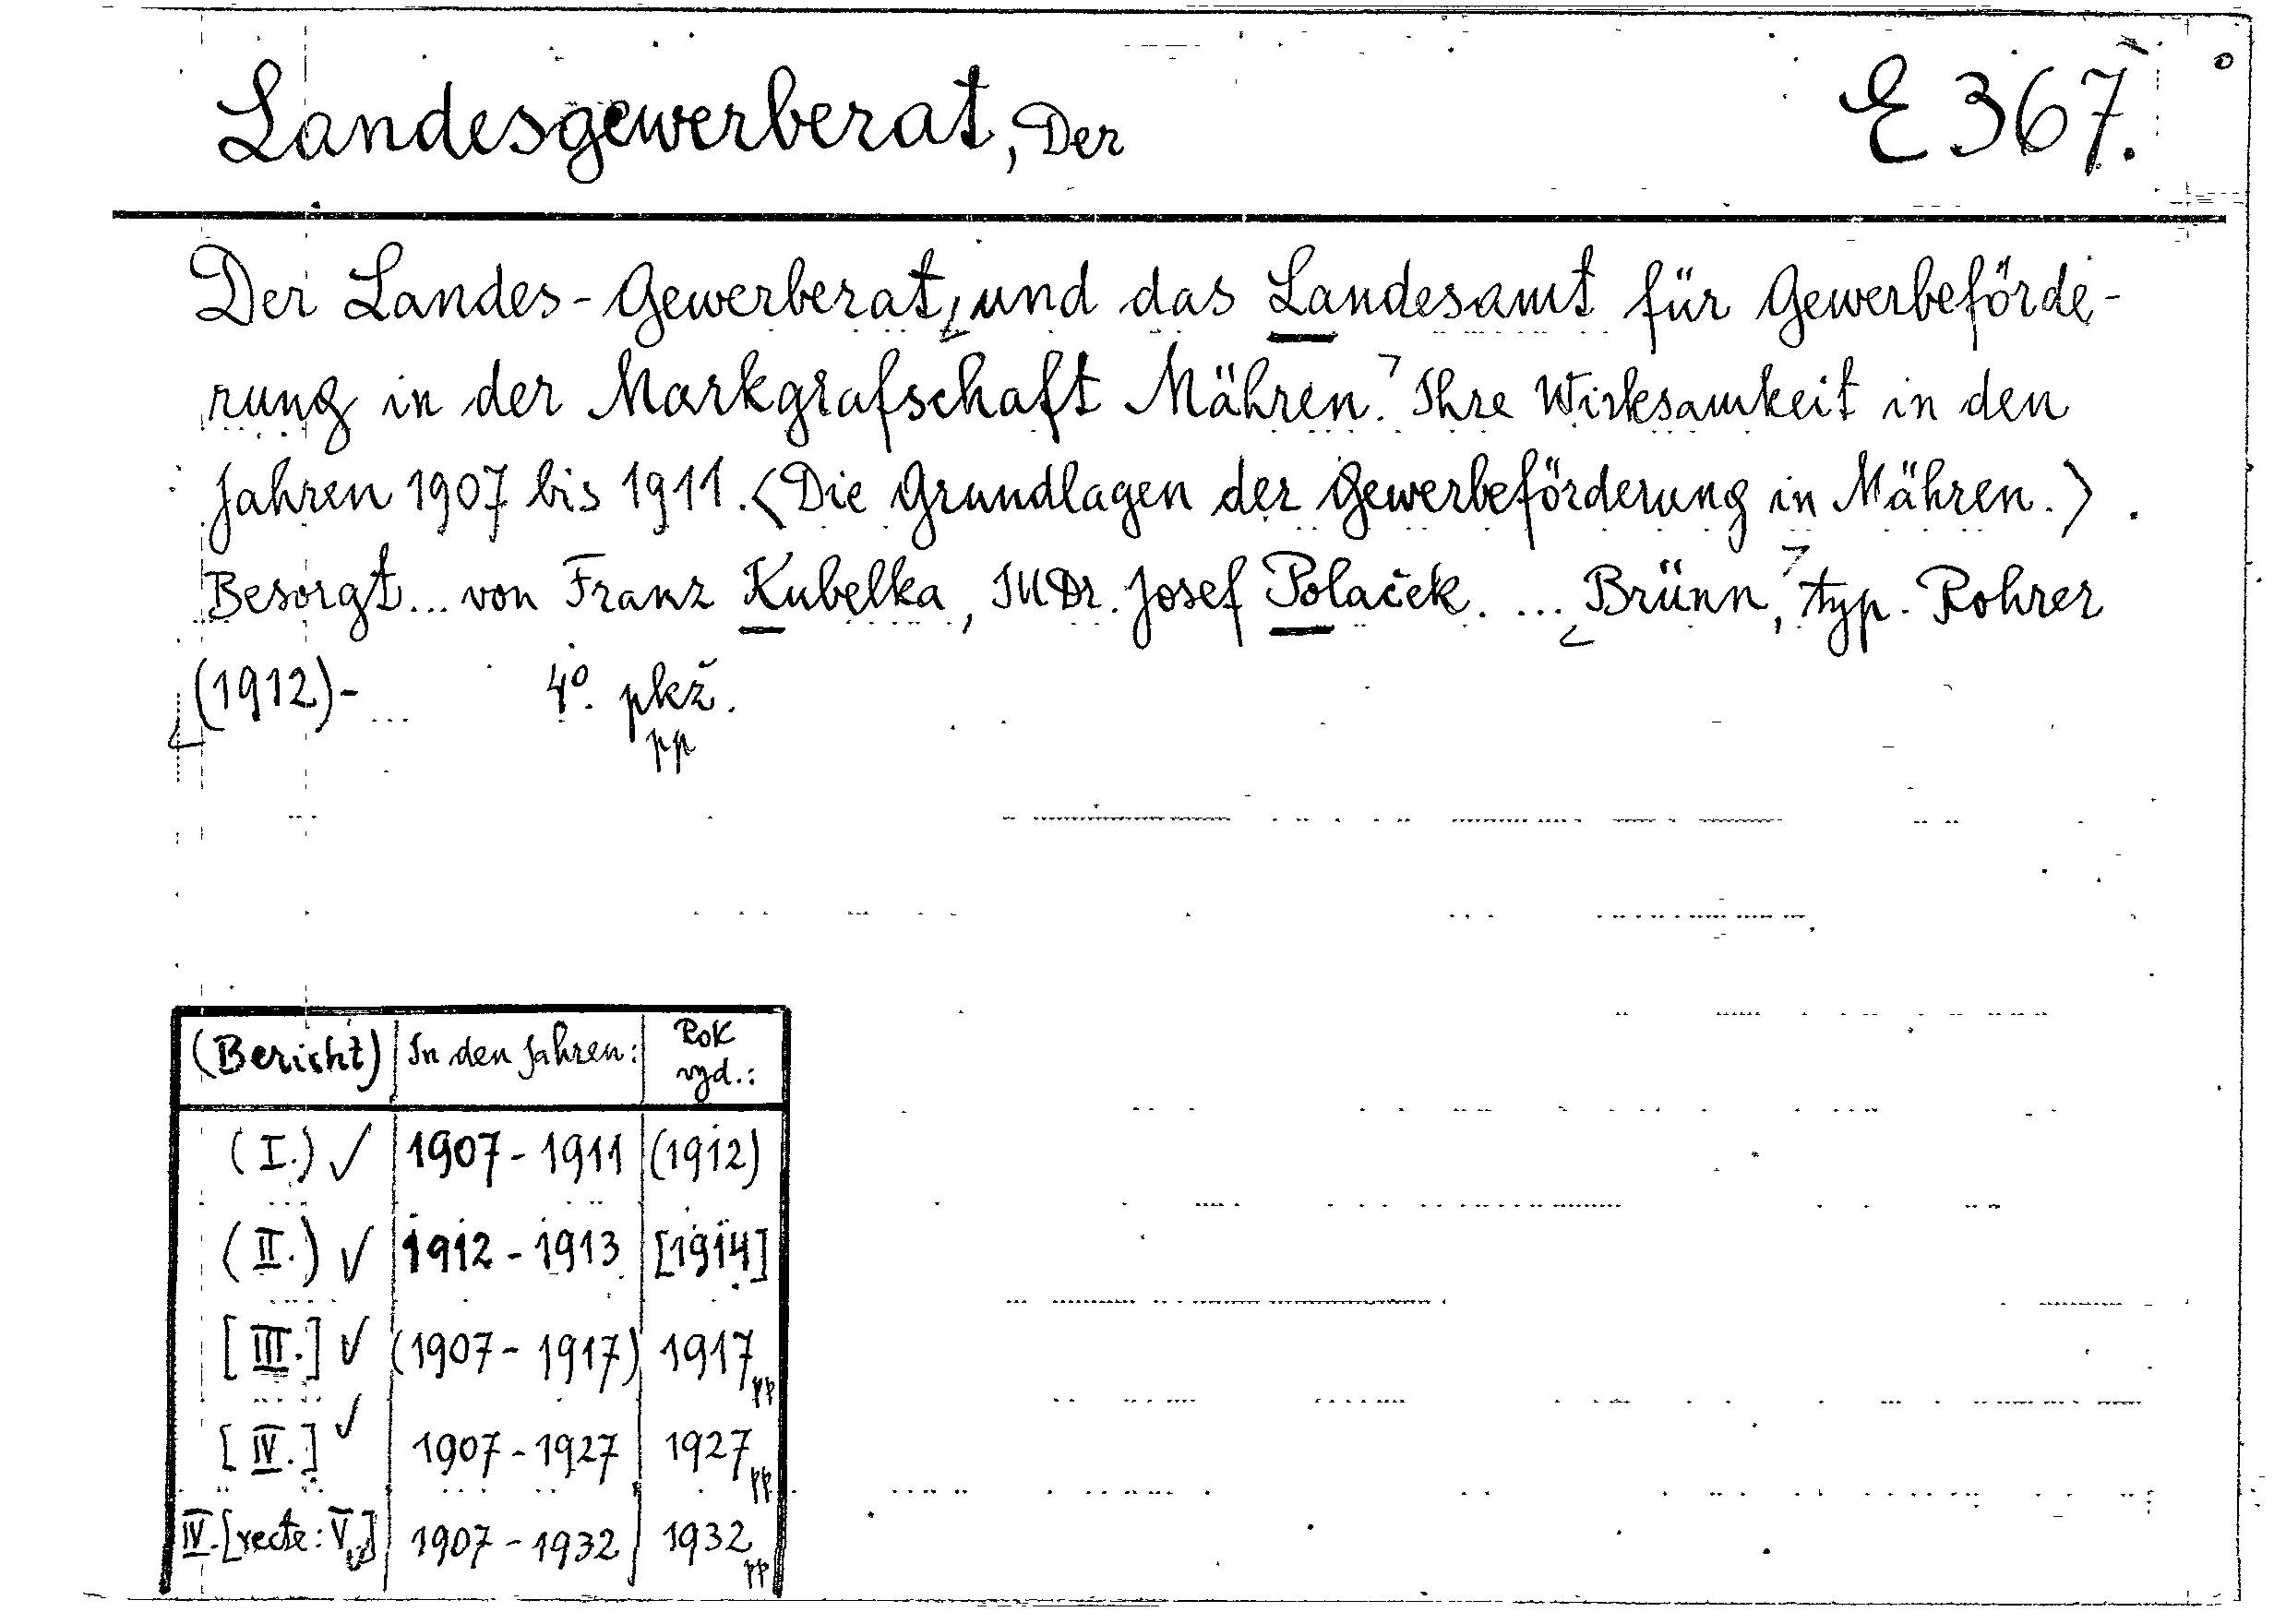 Landesgewerberat, Der E 367.
Der Landes-Gewerberat, und das Landesamt für Gewerbeförde-
rung in der Markgrafschaft Mähren. Ihre Wirksamkeit in den
Jahren 1907 bis 1911. <Die Grundlagen der Gewerbeförderung in Mähren.>.
Besorgt... von Franz Kubelka, JUDr. Josef Polaček. ... Brünn, typ. Rohrer
(1912)- 4°. pkž.
pp
(Bericht) In den Jahren: Rok
vyd.:
(I.) ✓ 1907-1911 (1912)
(II.) ✓ 1912-1913 [1914]
[III.] ✓ (1907-1917) 1917 pp
[IV.] ✓ 1907-1927 1927 pp
IV. [recte: V.] ✓ 1907-1932 1932 pp